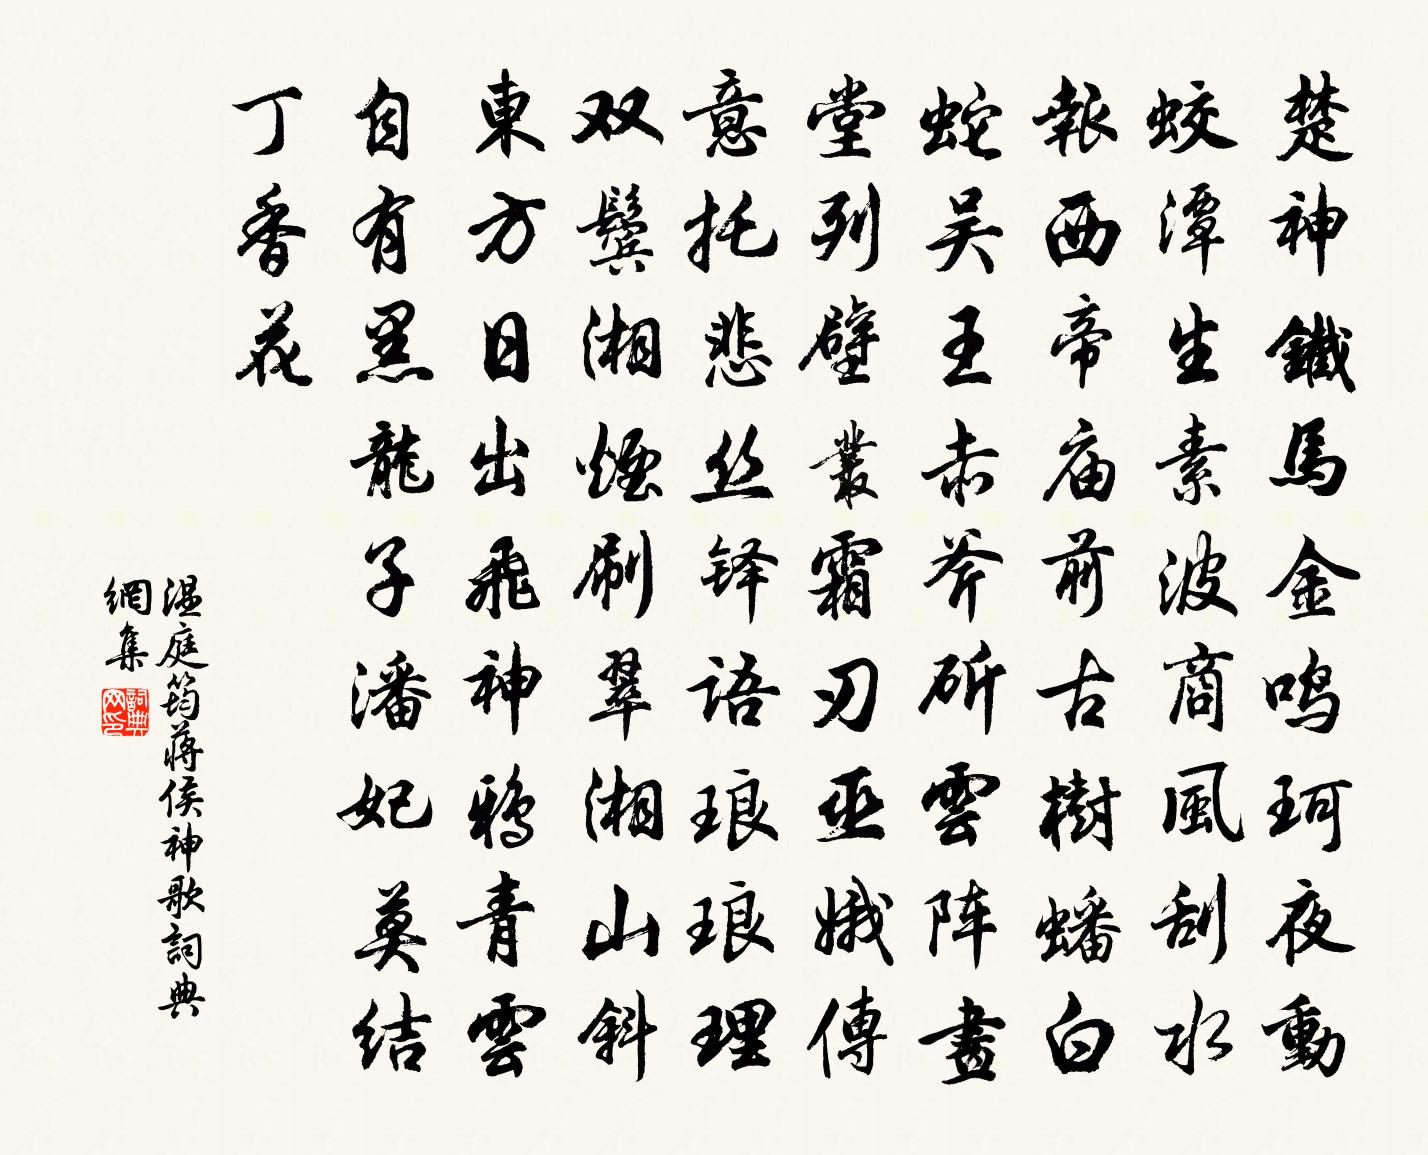 楚神鐵馬金鸣珂夜動
蛟潭生素波商風刮水
報西帝庙前古樹蟠白
蛇吴王赤斧斫雲阵畫
堂列壁叢霜刃巫娥傳
意托悲丝铎语琅琅理
双鬓湘煙刷翠湘山斜
東方日出飛神鸦青雲
自有黑龍子潘妃莫结
丁香花
温庭筠蒋侯神歌詞典
網集
詞典网印